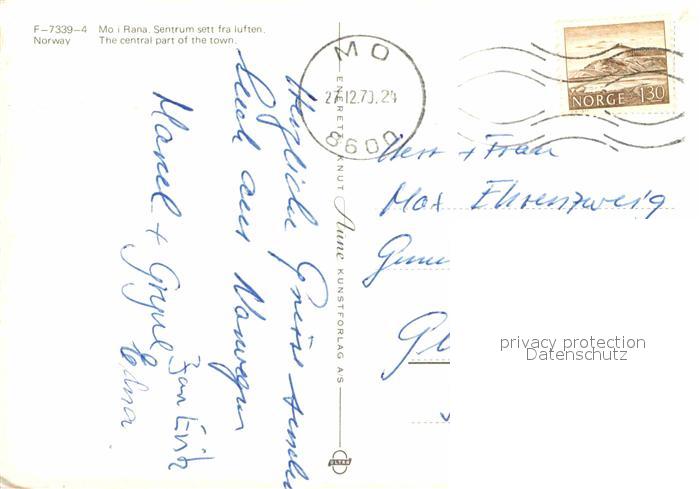 F-7339-4 Mo i Rana. Sentrum sett fra luften.
Norway The central part of the town.
MO
27.12.79.24
8600
NORGE 130
ENERETT: KNUT Aune KUNSTFORLAG A/S
Herzliche Grüsse senden
Euch aus Norwegen
Marcel +
Jan Erik
Edna
Herr + Frau
Max Ehrenzweig
privacy protection
Datenschutz